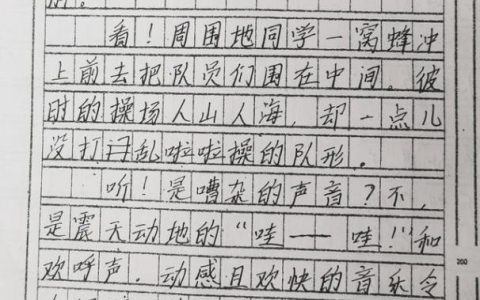 看！周围地同学一窝蜂冲
上前去把队员们围在中间。彼
时的操场人山人海，却一点儿
没打闩乱啦啦操的队形。
听！是嘈杂的声音？不，
是震天动地的“哇——哇！”和
欢呼声．动感且欢快的音乐令
200